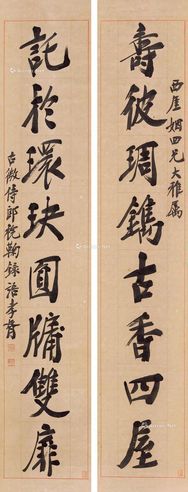 西厓姻四兄大雅属
壽彼琱鐫古香四屋
託於環玦圓牖雙扉
古微侍郎祝鞠錄語孝胥